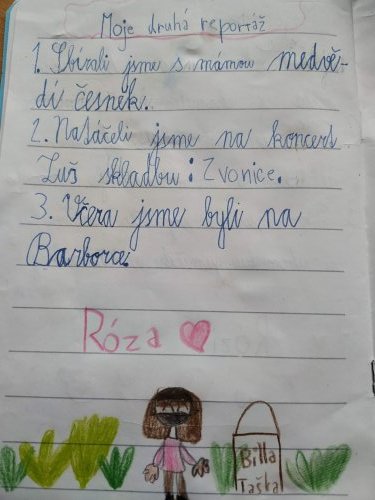 Moje druhá reportáž
1. Sbírali jsme s mámou medvě-
dí česnek.
2. Natáčeli jsme na koncert
Zuš skladbu: Zvonice.
3. Včera jsme byli na
Barborce.
Róza
Billa
Taška